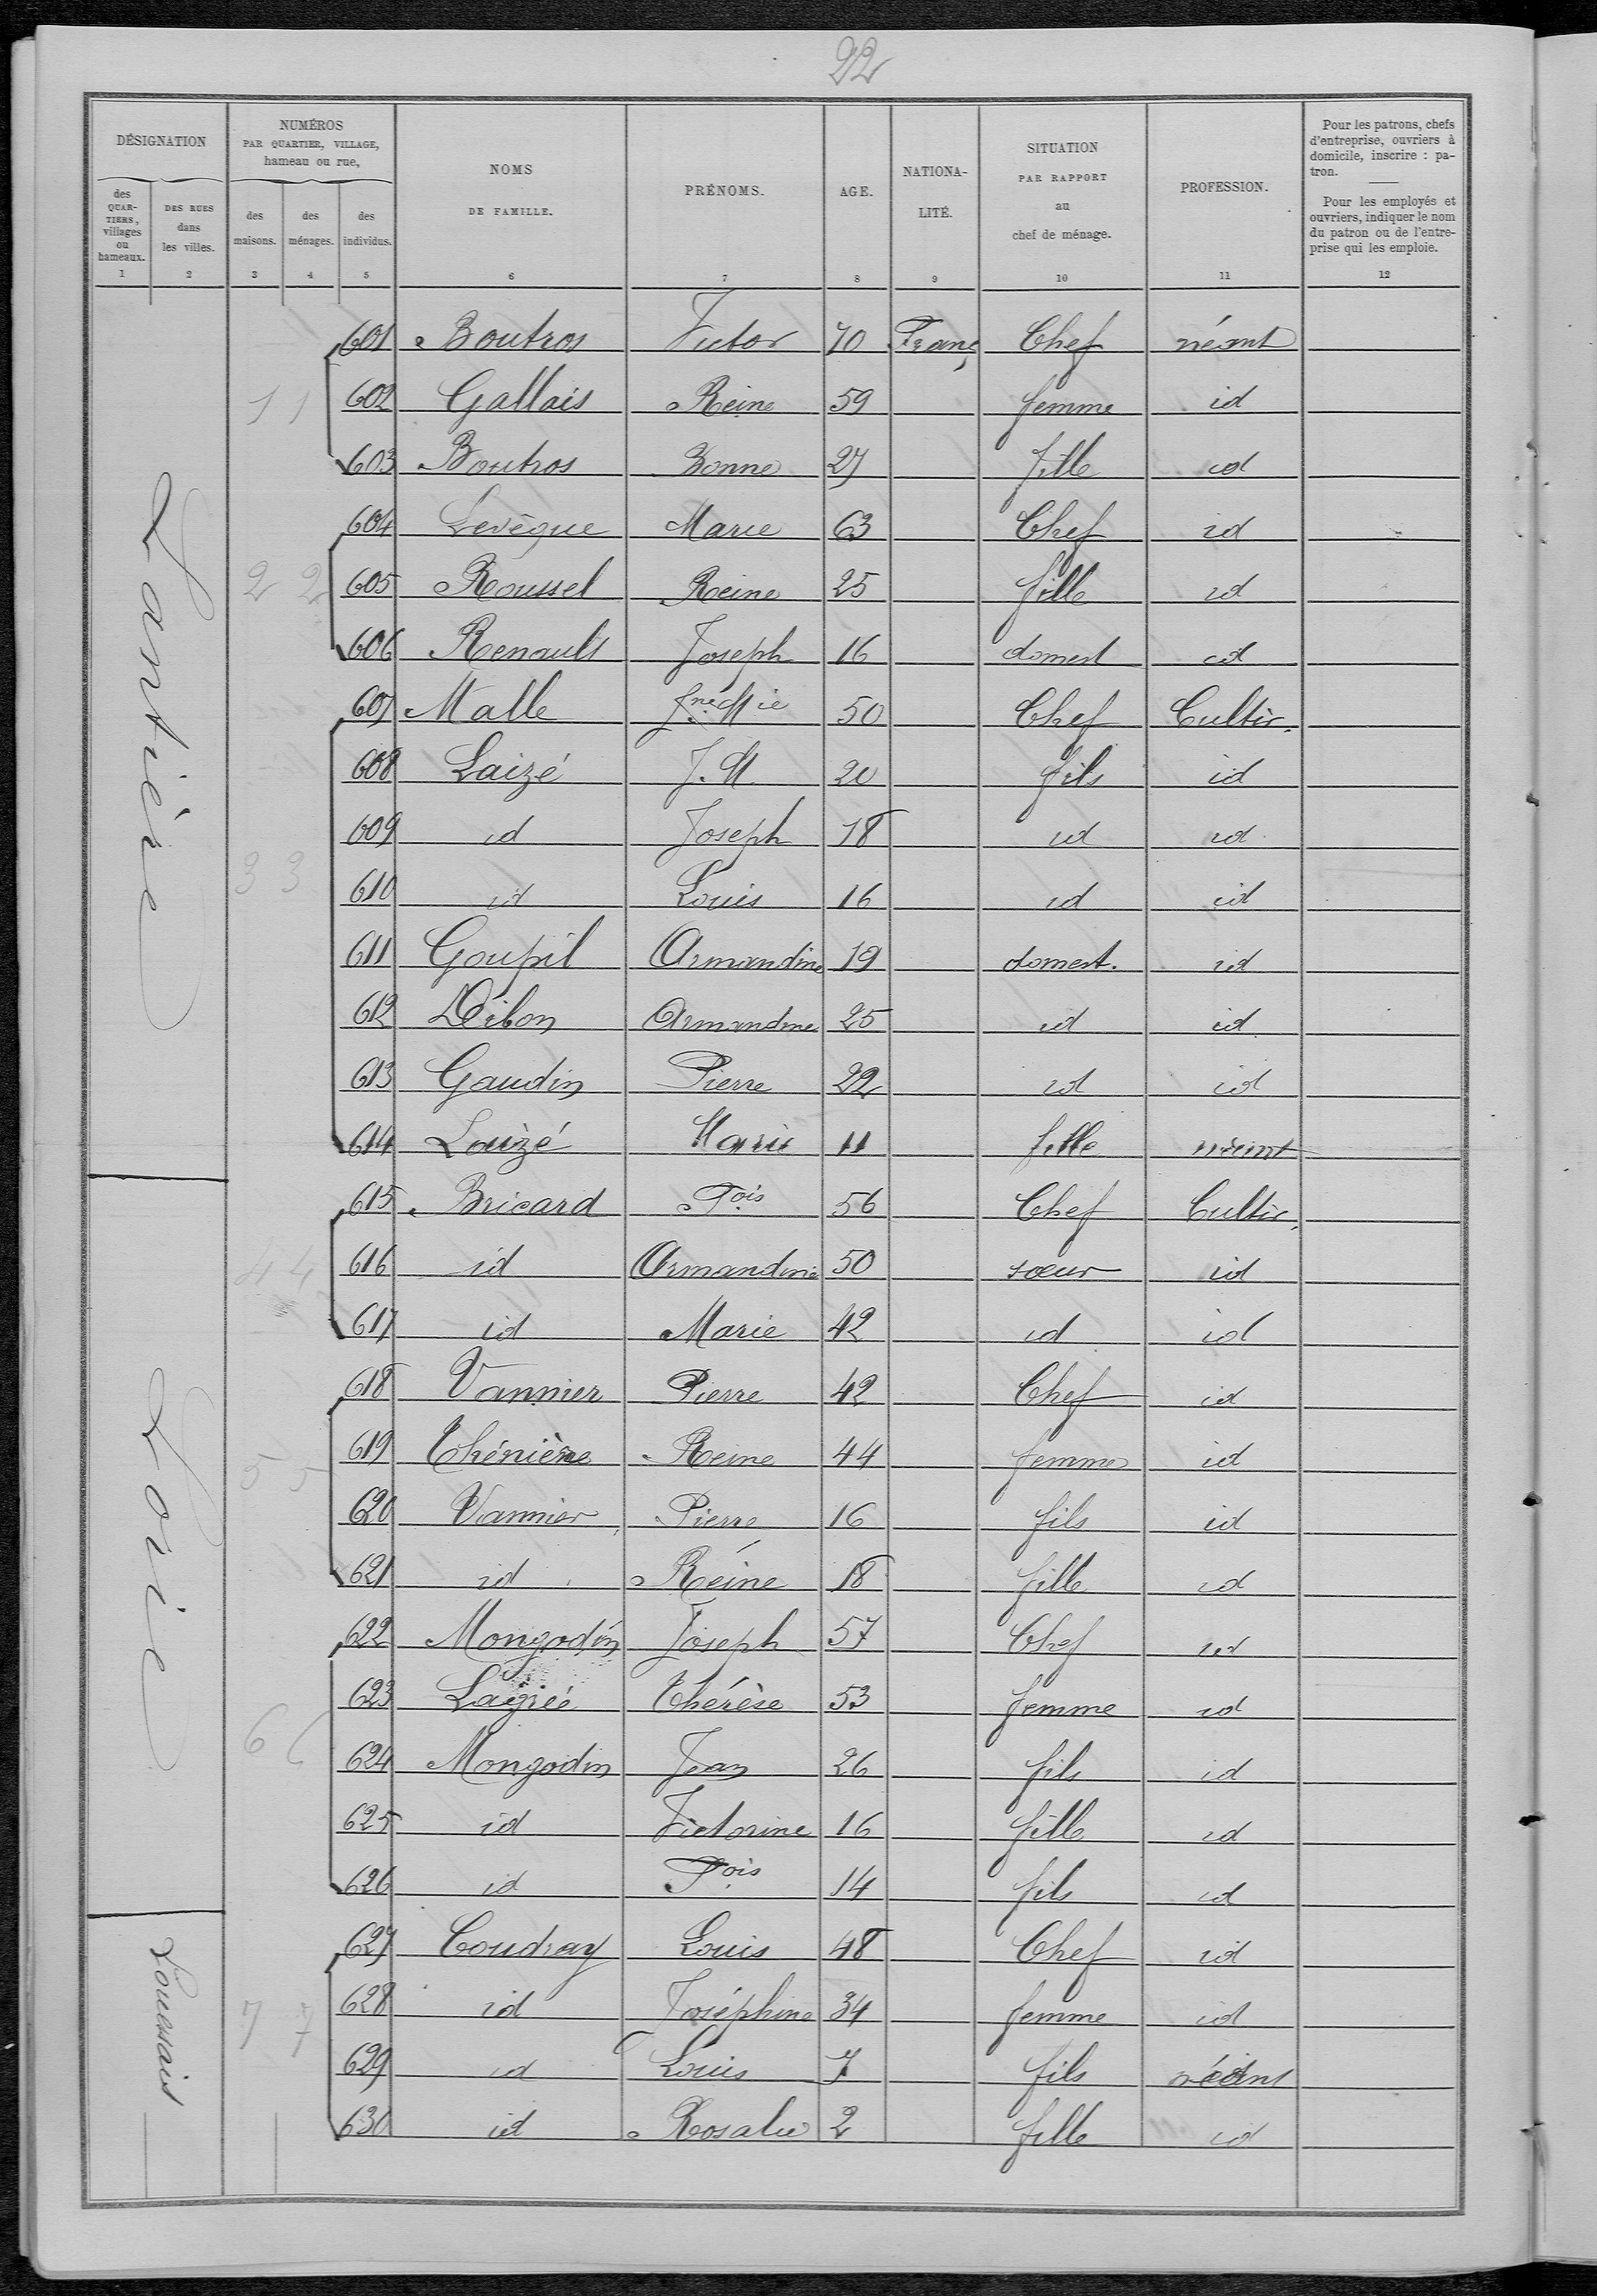 22
DÉSIGNATION
des QUARTIERS, villages ou hameaux.
1
DES RUES dans les villes.
2
NUMÉROS
PAR QUARTIER, VILLAGE,
hameau ou rue,
des maisons.
3
des ménages.
4
des individus.
5
NOMS
DE FAMILLE.
6
PRÉNOMS.
7
AGE.
8
NATIONA-
LITÉ.
9
SITUATION
PAR RAPPORT
au
chef de ménage.
10
PROFESSION.
11
Pour les patrons, chefs
d'entreprise, ouvriers à
domicile, inscrire : pa-
tron.
Pour les employés et
ouvriers, indiquer le nom
du patron ou de l'entre-
prise qui les emploie.
12
601 Boutros Victor 70 Franç Chef néant
1 1 602 Gallais Reine 59 femme id
603 Boutros Bonne 27 fille id
604 Levêque Marie 63 Chef id
2 2 605 Roussel Reine 25 fille id
606 Renault Joseph 16 domest id
607 Malle 50 Chef Cultiv.
608 Laizé J. M. 20 fils id
609 id Joseph 18 id id
3 3 610 id Louis 16 id id
611 Goupil Armandine 19 domest. id
612 Armandine 25 id id
613 Gaudin Pierre 22 id id
614 Laizé Marie 11 fille néant
615 Bricard Fois 56 Chef Cultiv.
4 4 616 id Armandine 50 sœur id
617 id Marie 42 id id
618 Vannier Pierre 42 Chef id
5 5 619 Thénière Reine 44 femme id
620 Vannier Pierre 16 fils id
621 id Reine 18 fille id
622 Mongodin Joseph 57 Chef id
623 Lagrée Thérèse 53 femme id
6 6 624 Mongodin Jean 26 fils id
625 id Victorine 16 fille id
626 id Fois 14 fils id
627 Coudray Louis 48 Chef id
7 7 628 id Joséphine 34 femme id
629 id Louis 7 fils néant
630 id Rosalie 2 fille id